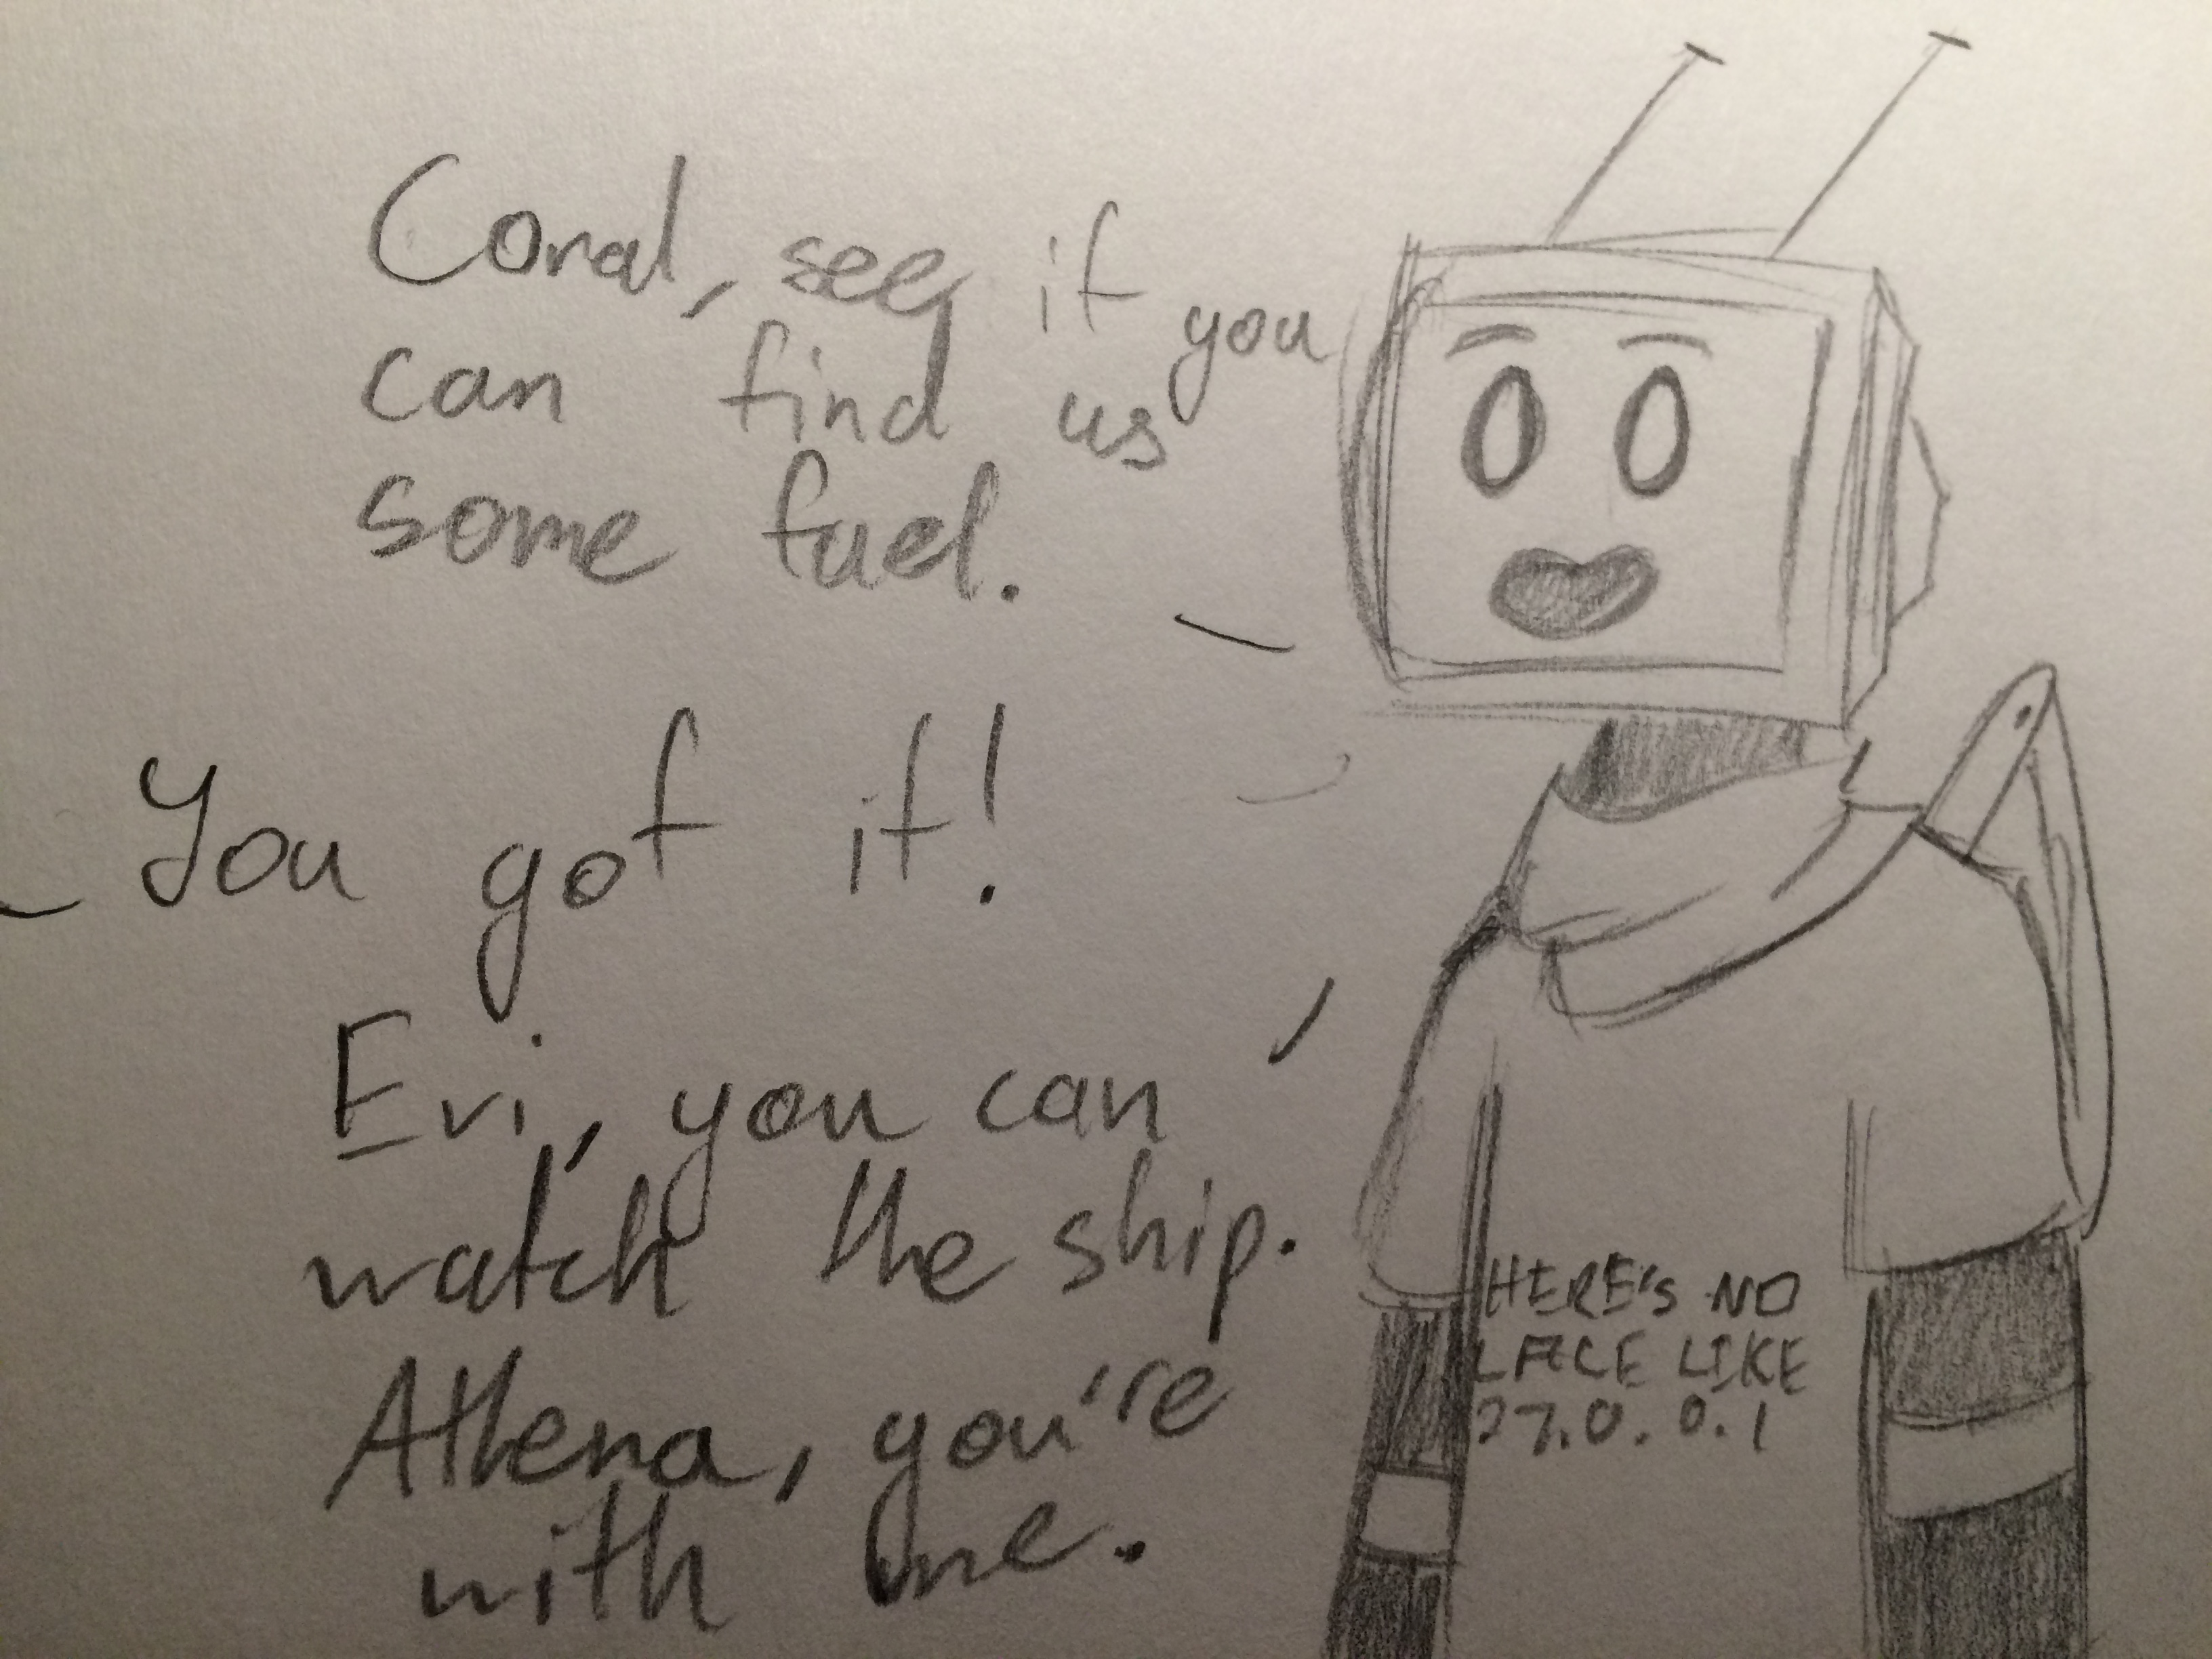 Coral, see if you
can find us
some fuel.
You got it!
Evi, you can
watch the ship.
Athena, you're
with me.
HERE'S NO
LACE LIKE
27.0.0.1